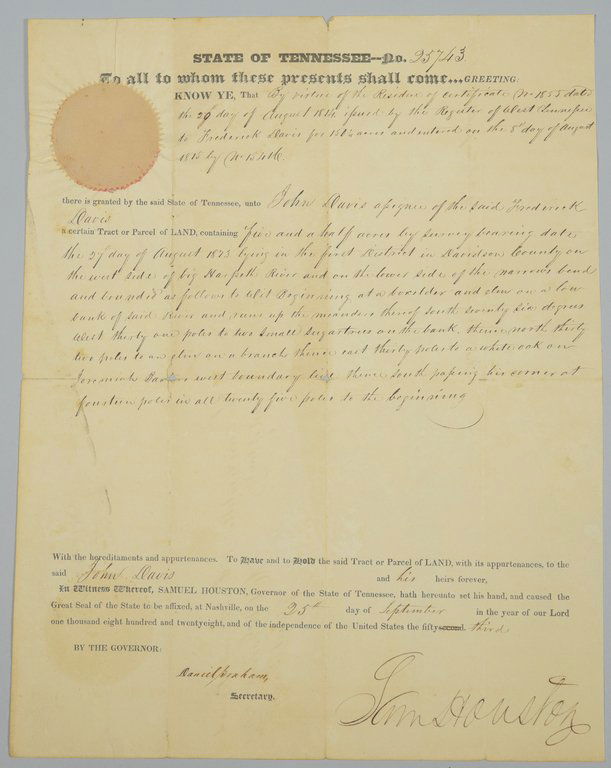 STATE OF TENNESSEE--No. 25743.
To all to whom these presents shall come...GREETING:
KNOW YE, That By virtue of the Residue of Certificate No 1855 dated
the 20 day of August 1814 issued by the Register of West Tennessee
to Frederick Davis for acres and entered on the 8th day of August
1815 by No
there is granted by the said State of Tennessee, unto John Davis asignee of the said Frederick
Davis
a certain Tract or Parcel of LAND, containing five and a half acres by survey bearing date
the 27 day of August 1823 lying in the first District in Davidson County on
the west side of big Harpeth River and on the lower side of the narrows bend
and bounded as follows to Wit Beginning at a boxelder and elm on a low
bank of said River and runs up the meanders thereof south seventy six degrees
West thirty one poles to two small sugartrees on the bank, thence north thirty
two poles to an elm on a branch thence east thirty poles to a white oak on
Jeremiah west boundary line thence south passing his corner at
fourteen poles in all twenty five poles to the beginning
With the hereditaments and appurtenances. To Have and to Hold the said Tract or Parcel of LAND, with its appurtenances, to the
said John Davis and his heirs forever,
In Witness Whereof, SAMUEL HOUSTON, Governor of the State of Tennessee, hath hereunto set his hand, and caused the
Great Seal of the State to be affixed, at Nashville, on the 25th day of September in the year of our Lord
one thousand eight hundred and twentyeight, and of the independence of the United States the fifty-second. third
BY THE GOVERNOR:
Daniel Graham,
Secretary.
Sam Houston